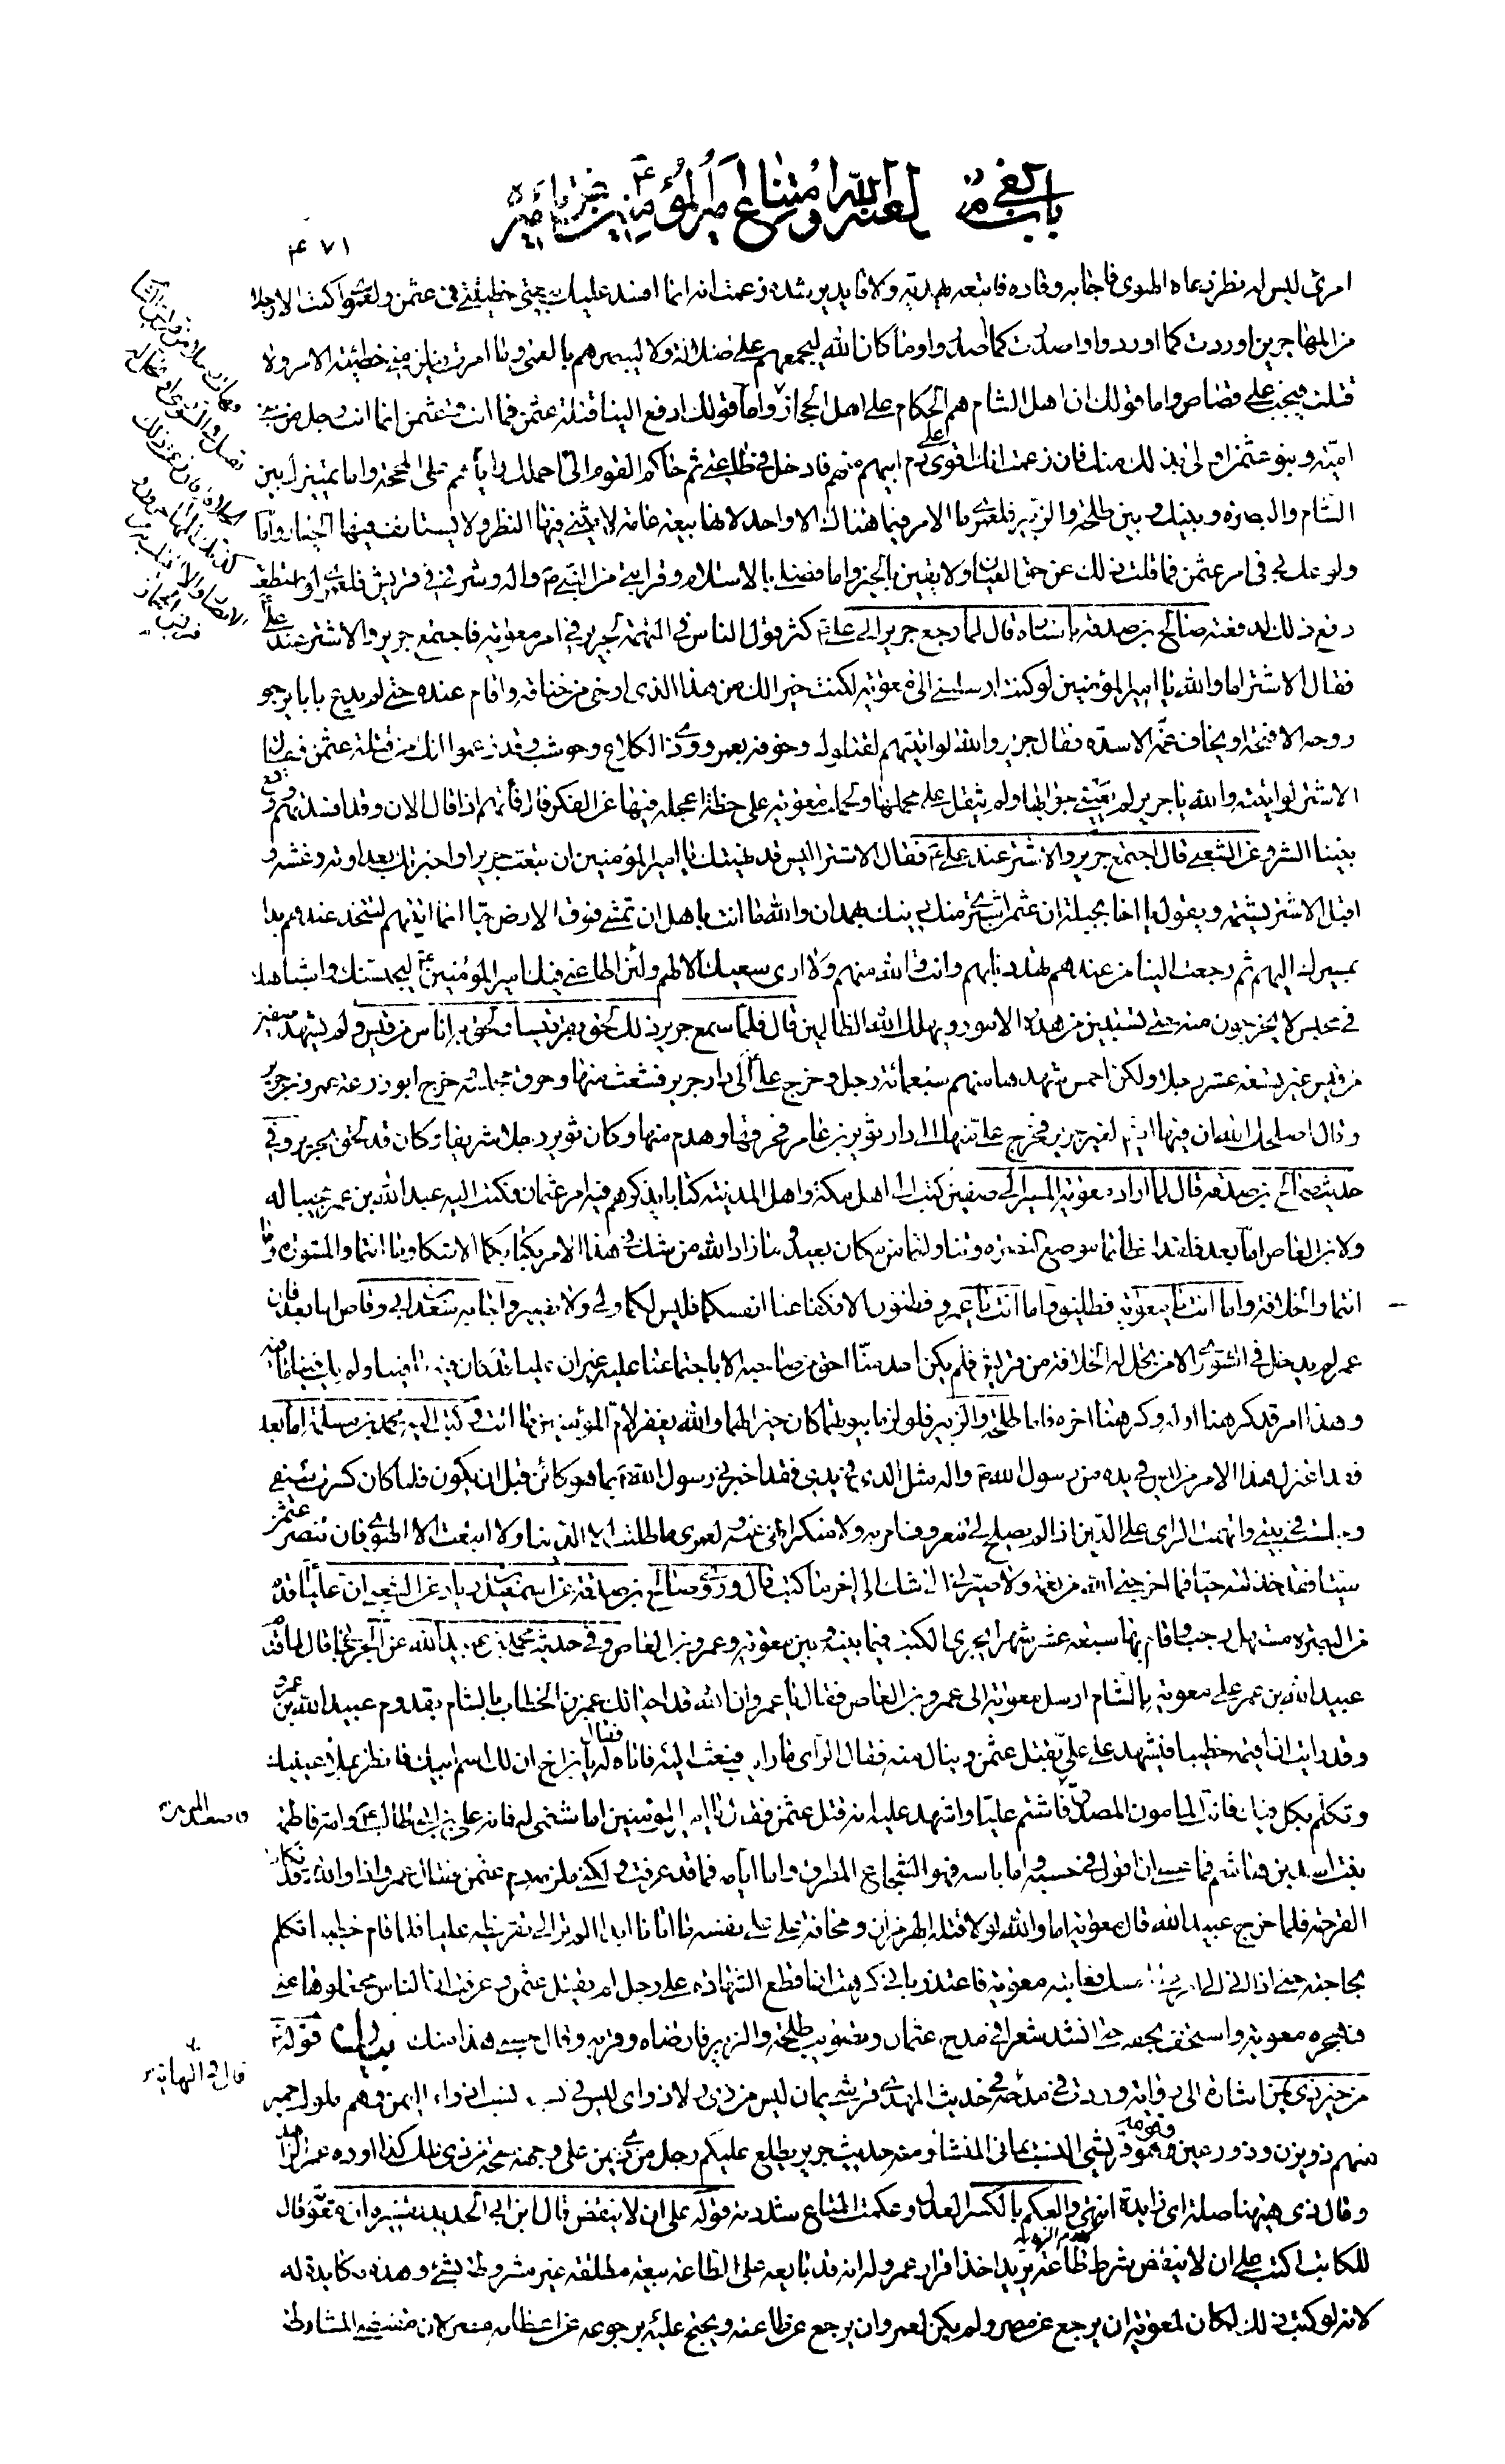 باب بغي معوية لعنه الله وامتناع امير المؤمنين عن تاميره
٤٧١
امرئ ليس له نظر دعاه الهوى فاجابه وقاده فاتبعه يهديه ولا قايد يرشده زعمت انه انما افسد عليك بيعتي خطيئتي في عثمن ولعمري ما كنت الا رجلا
من المهاجرين اوردت كما اوردوا واصدرت كما اصدروا وما كان الله ليجمعهم على ضلالة ولا ليبصرهم بالعمى وما امرت فيلزمني خطيئة الامر ولا
قتلت فيجب علي قصاص واما قولك ان اهل الشام هم الحكام على اهل الحجاز واما قولك ادفع الينا قتلة عثمن فما انت وعثمن انما انت رجل من بني
امية وبنو عثمن اولى بذلك منك فان زعمت انك اقوى على دم ابيهم منهم فادخل في طاعتي ثم حاكم القوم الي احملك واياهم على المحجة واما تمييزك بين
الشام والبصرة وبينك وبين طلحة والزبير فلعمري ما الامر فيما هناك الا واحد لانها بيعة عامة لا يثنى فيها النظر ولا يستانف فيها الخيار واما
ولوعك بي في امر عثمن فما قلت ذلك عن حق العيان ولا يقين بالخبر واما فضلي بالاسلام وقرابتي من النبي ص واله وشرفي في قريش فلعمري لو استطعت
دفع ذلك لدفعته صالح بن صدقة باسناده قال لما رجع جرير الى علي ع كثر قول الناس في التهمة لجرير في امر معوية فاجتمع جرير والاشتر عند علي
فقال الاشتر اما والله يا امير المؤمنين لو كنت ارسلتني الى معوية لكنت خيرا لك من هذا الذي ارخى من خناقه واقام عنده حتى لم يدع بابا يرجو
روحه الا فتحه او يخاف غمه الا سده فقال جرير والله لو اتيتهم لقتلوك وخوفه بعمرو وذي الكلاع وحوشب وقد زعموا انك من قتلة عثمن فقال
الاشتر لو اتيته والله يا جرير لم يعيني جوابها ولم يثقل علي محملها ولحملت معوية على خطة اعجله فيها عن الفكر قال فأتهم اذا قال الان وقد افسدتهم ووقع
بيننا الشر وعن الشعبي قال اجتمع جرير والاشتر عند علي ع فقال الاشتر اليس قد نهيتك يا امير المؤمنين ان تبعث جريرا واخبرتك بعداوته وغشه و
اقبل الاشتر يشتمه ويقول يا اخا بجيلة ان عثمن اشترى منك دينك بهمدان والله ما انت باهل ان تمشي فوق الارض حيا انما اتيتهم لتتخذ عندهم يدا
بمسيرك اليهم ثم رجعت الينا من عندهم تهددنا بهم وانت والله منهم ولا ارى سعيك الا لهم ولئن اطاعني فيك امير المؤمنين ع ليحبسنك واشباهك
في محبس لا يخرجون منه حتى تستبين هذه الامور ويهلك الله الظالمين قال فلما سمع جرير ذلك لحق بقرقيسا ولحق به اناس من قيس ولم يشهد صفين
من قيس غير تسعة عشر رجلا ولكن احمس شهدها منهم سبعمائة رجل وخرج علي ع الى دار جرير فشعث منها وحرق مجلسه خرج ابو زرعة بن عمرو بن جرير
وقال اصلحك الله ان فيها ارضا لغير جرير فخرج علي ع منها الى دار ثوير بن عامر فحرقها وهدم منها وكان ثوير رجلا شريفا وكان قد لحق بجرير وفي
حديث صالح بن صدقة قال لما اراد معوية المسير الى صفين كتب الى اهل مكة واهل المدينة كتابا يذكرهم فيه امر عثمان فكتب اليه عبد الله بن عمر مجيبا له
ولابن العاص اما بعد فلقد اخطأتما موضع النصرة وتناولتماها من مكان بعيد وما زاد الله من شك في هذا الامر بكتابكما الا شكا وما انتما والمشورة وما
انتما والخلافة واما انت يا معوية فطليق واما انت يا عمرو فظنون الا فكفا عنا انفسكما فليس لكما ولي ولا نصير واجابه سعد بن ابي وقاص اما بعد فان
عمر لم يدخل في الشورى الا من يحل له الخلافة من قريش فلم يكن احد منا احق من صاحبه الا باجتماعنا عليه غير ان عليا قد كان فيه ما فينا ولم يك فينا ما فيه
وهذا امر قد كرهنا اوله وكرهنا اخره فاما طلحة والزبير فلو لزما بيوتهما كان خيرا لهما والله يغفر لام المؤمنين ما اتت وكتب اليه محمد بن مسلمة اما بعد
فقد اعتزل هذا الامر من ليس في يده من رسول الله ص واله مثل الذي في يدي فقد اخبرني رسول الله ص بما هو كائن قبل ان يكون فلما كان كسرت سيفي
وجلست في بيتي واتهمت الراي على الدين اذ لم يصلح لي معروف امر به ولا منكر انهى عنه ولعمري ما طلبت الا الدنيا ولا اتبعت الا الهوى فان تنصر عثمن
ميتا فقد خذلته حيا فما اخرجني الله من نعمة ولا صيرني الى شك الى اخر ما كتب قال وروى صالح بن صدقة عن اسمعيل بن زياد عن الشعبي ان عليا ع قدم
من البصرة مستهل رجب واقام بها سبعة عشر شهرا يجري الكتب فيما بينه وبين معوية وعمرو بن العاص وفي حديث محمد بن عبيد الله عن الجرجاني قال لما قدم
عبيد الله بن عمر على معوية بالشام ارسل معوية الى عمرو بن العاص فقال يا عمرو ان الله قد احيا لك عمر بن الخطاب بالشام بقدوم عبيد الله بن عمر
وقد رايت ان اقيمه خطيبا فيشهد على علي بقتل عثمن وينال منه فقال الراي ما رايت فبعث اليه فاتاه فقال له يا بن اخ ان لك اسم ابيك فانظر بملأ عينيك
وتكلم بكل فيك فانت المامون المصدق فاشتم عليا واشهد عليه انه قتل عثمن فقال يا امير المؤمنين اما شتمي له فانه علي بن ابي طالب ع وامه فاطمة
بنت اسد بن هاشم فما عسى ان اقول في حسبه واما باسه فهو الشجاع المطرق واما ايامه فما قد عرفت ولكني ملزمه دم عثمن فقال عمرو اذا والله قد نكات
القرحة فلما خرج عبيد الله قال معوية اما والله لولا قتله الهرمزان ومخافة علي على نفسه ما اتانا ابدا الم تر الى تقريظه عليا فلما قام خطيبا تكلم
بحاجته حتى اذا اتى الى امر علي امسك فعاتبه معوية فاعتذر باني كرهت ان اقطع الشهادة على رجل لم يقتل عثمن وعرفت ان الناس محتملوها عني
فهجره معوية واستخف بحقه حتى انشد شعرا في مدح عثمان وتصويب طلحة والزبير فارضاه وقربه وقال حسبي هذا منك بيان قوله ص
من خير ذي يمن اشارة الى قرابته ورد في مدحه في حديث المهدي قرشي يمان ليس من ذي ولا ذو اي ليس نسبه نسب اذواء اليمن وهم ملوك حمير
منهم ذو يزن وذو رعين وقوله قرشي النسب يماني المنشأ ومنه حديث جرير يطلع عليكم رجل من ذي يمن على وجهه مسحة من ذي ملك كذا اورده عمر الزاهد
وقال ذي هيهنا صلة اي زايدة انتهى والعكم بالكسر العدل وعكمت المتاع شددته قوله على ان لا ينقض قال ابن ابي الحديد تفسيره ان معوية قال
للكاتب اكتب على ان لا ينقض شرط طاعة يريد اخذ اقرار عمرو له انه قد بايعه على الطاعة بيعة مطلقة غير مشروطة بشئ وهذه مكايدة له
لانه لو كتب ذلك لكان لمعوية ان يرجع عن مصر ولم يكن لعمرو ان يرجع عن طاعته ويحتج عليه برجوعه عن اعطائه مصر لان مقتضى المشارطة
قال في النهاية